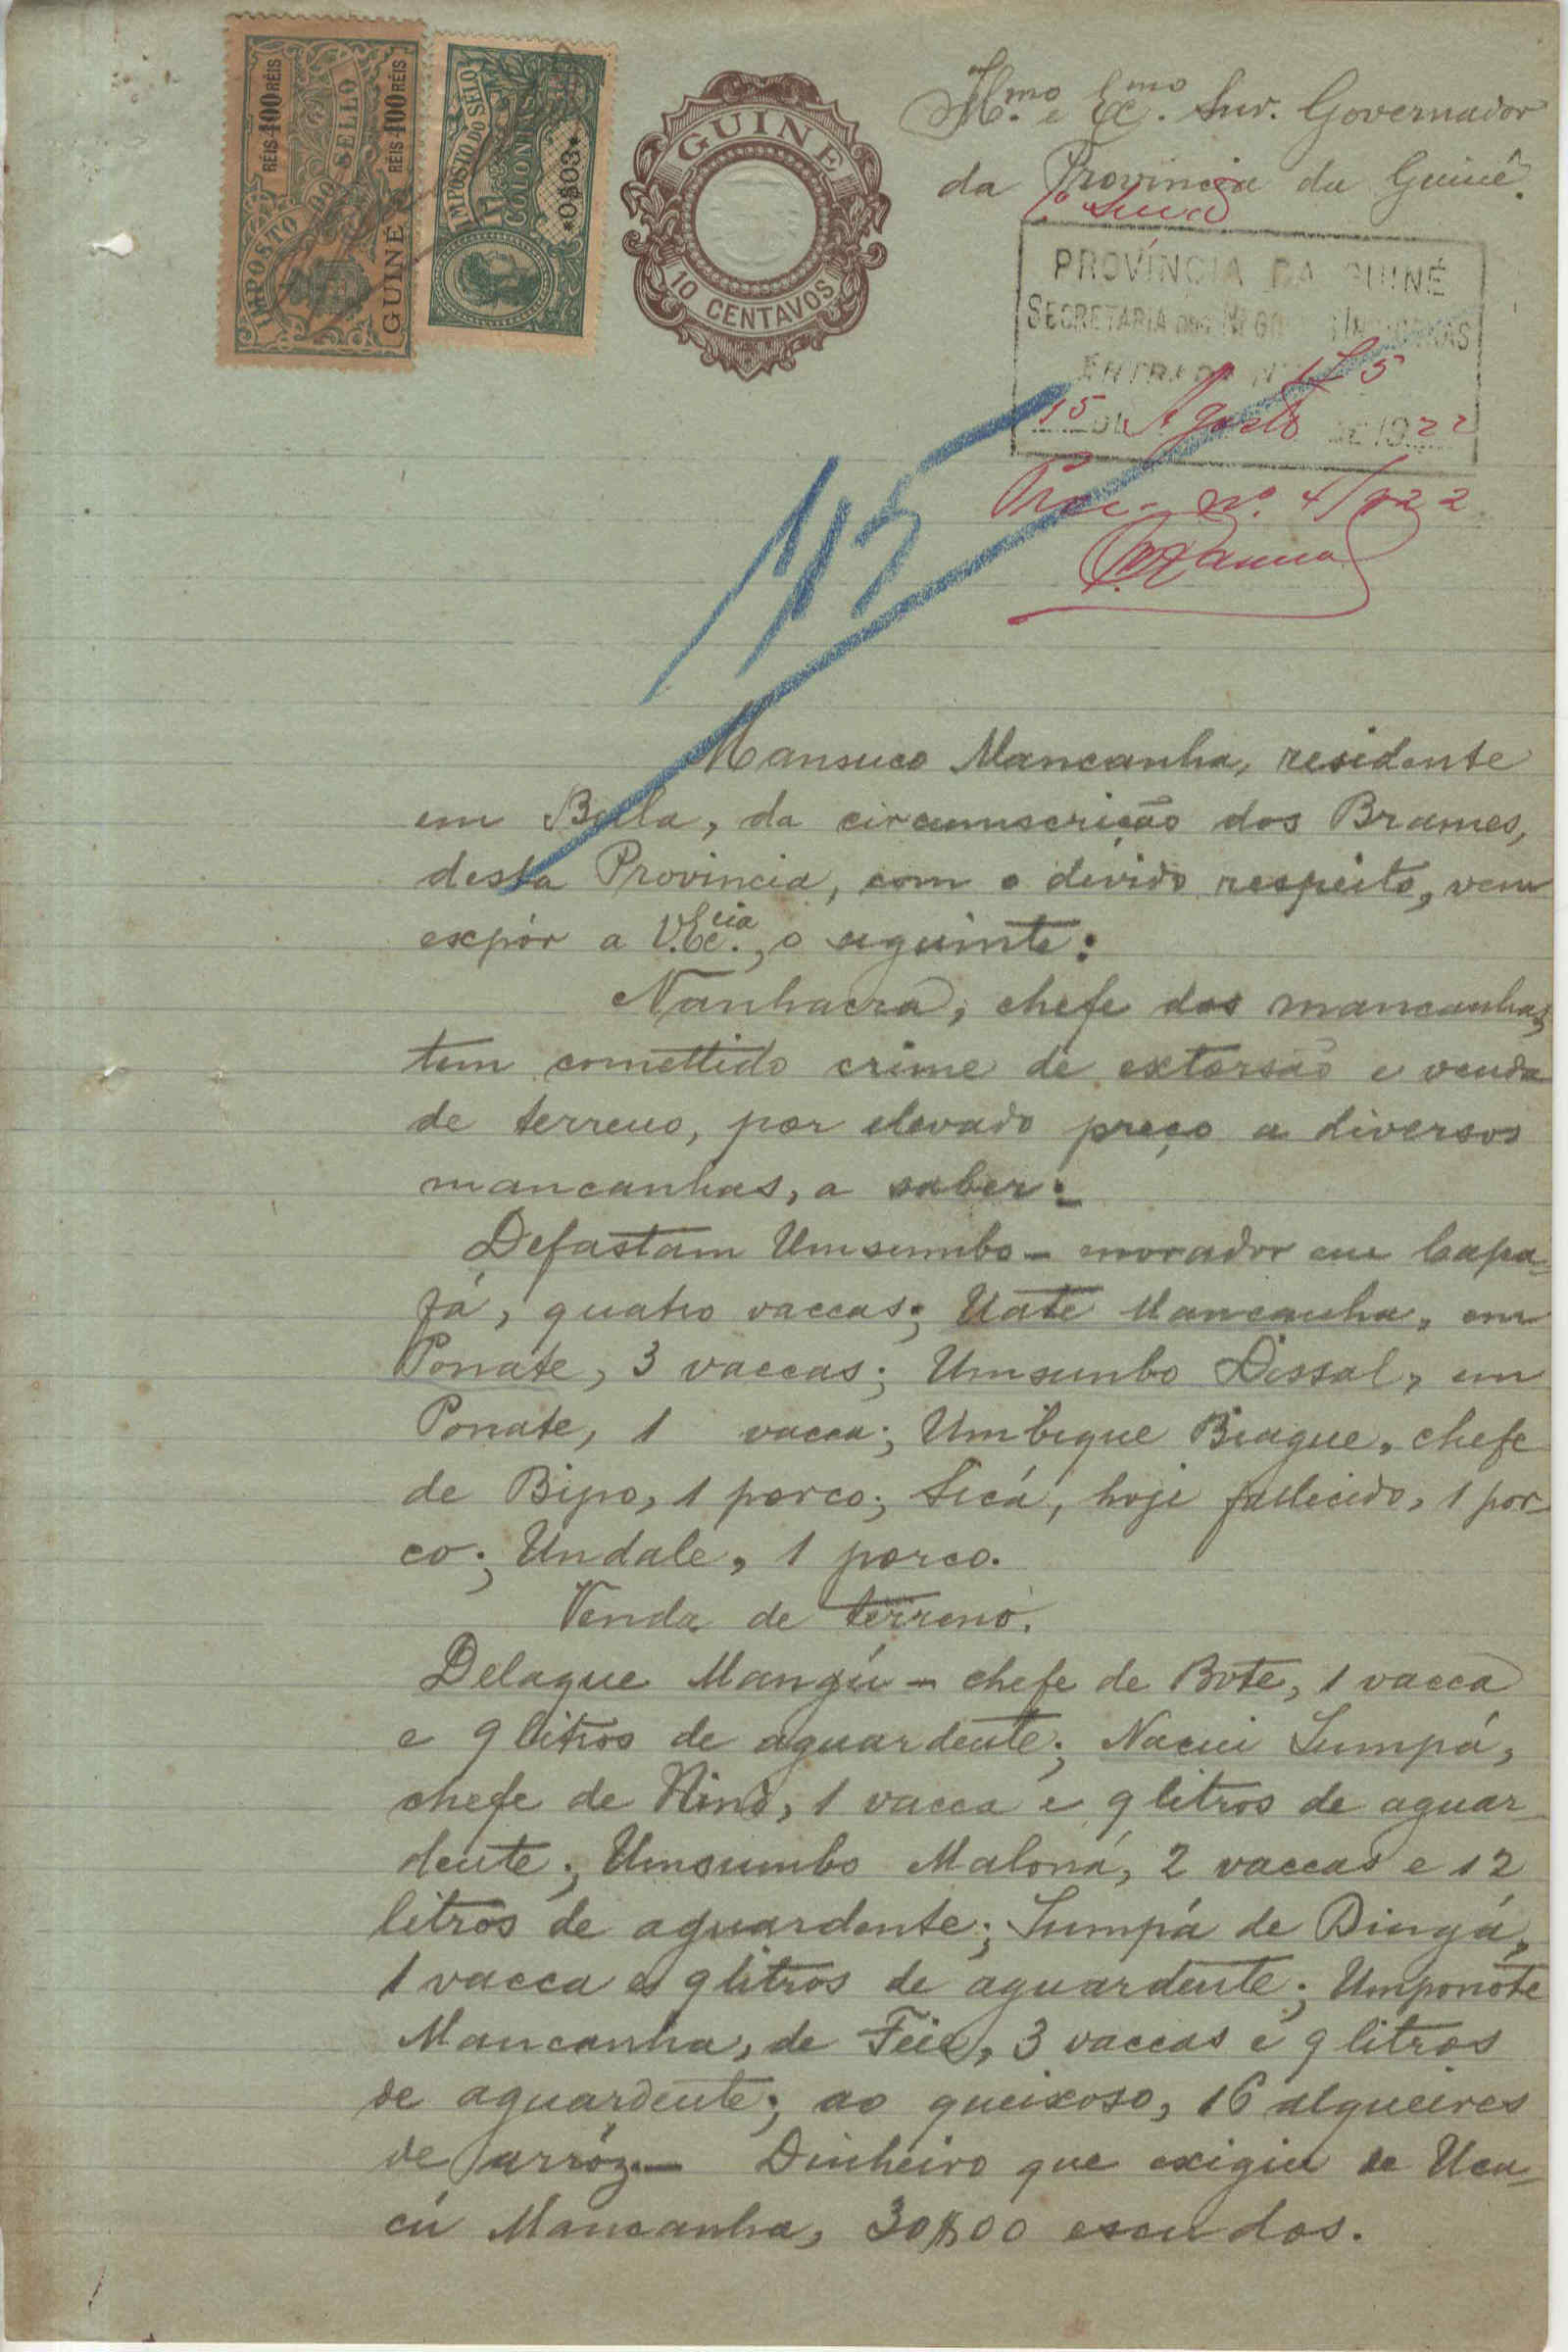 IMPOSTO DO SELLO
RÉIS 400 RÉIS
RÉIS 400 RÉIS
GUINÉ
IMPOSTO DO SELO
COLONIAS
*0$03*
GUINÉ
10 CENTAVOS
Ill.mo e Ex.mo Snr. Governador
da Provincia da Guiné.
PROVÍNCIA DA GUINÉ
SECRETARIA DOS NEGOCIOS INDIGENAS
ENTRADA Nº 175
15 DE Agosto DE 1922
Proc. nº 4/922
175
Mansuco Mancanha, residente
em Bula, da circumscrição dos Brames,
desta Provincia, com o divido respeito, vem
expôr a V.Ec.cia, o seguinte:
Nanhacra, chefe dos mancanhas,
tem comettido crime de extorsão e venda
de terreno, por elevado preço a diversos
mancanhas, a saber:
Defastam Umsumbo - morador em Capa-
fá, quatro vaccas; Uate Mancanha, em
Ponate, 3 vaccas; Umsumbo Dissal, em
Ponate, 1 vacca; Umbique Biague, chefe
de Bipo, 1 porco; Sicá, hoje fallecido, 1 por-
co; Undale, 1 porco.
Venda de terreno.
Delague Mangú - chefe de Bote, 1 vacca
e 9 litros de aguardente; Nacui Sumpá,
chefe de Ninò, 1 vacca e 9 litros de aguar-
dente; Umsumbo Maloná, 2 vaccas e 12
litros de aguardente; Sumpá de Dingá,
1 vacca e 9 litros de aguardente; Umponote
Mancanha, de Feie, 3 vaccas e 9 litros
de aguardente; ao queixoso, 16 alqueires
de arróz.— Dinheiro que exigiu de Uca-
cú Mancanha, 30$00 escudos.